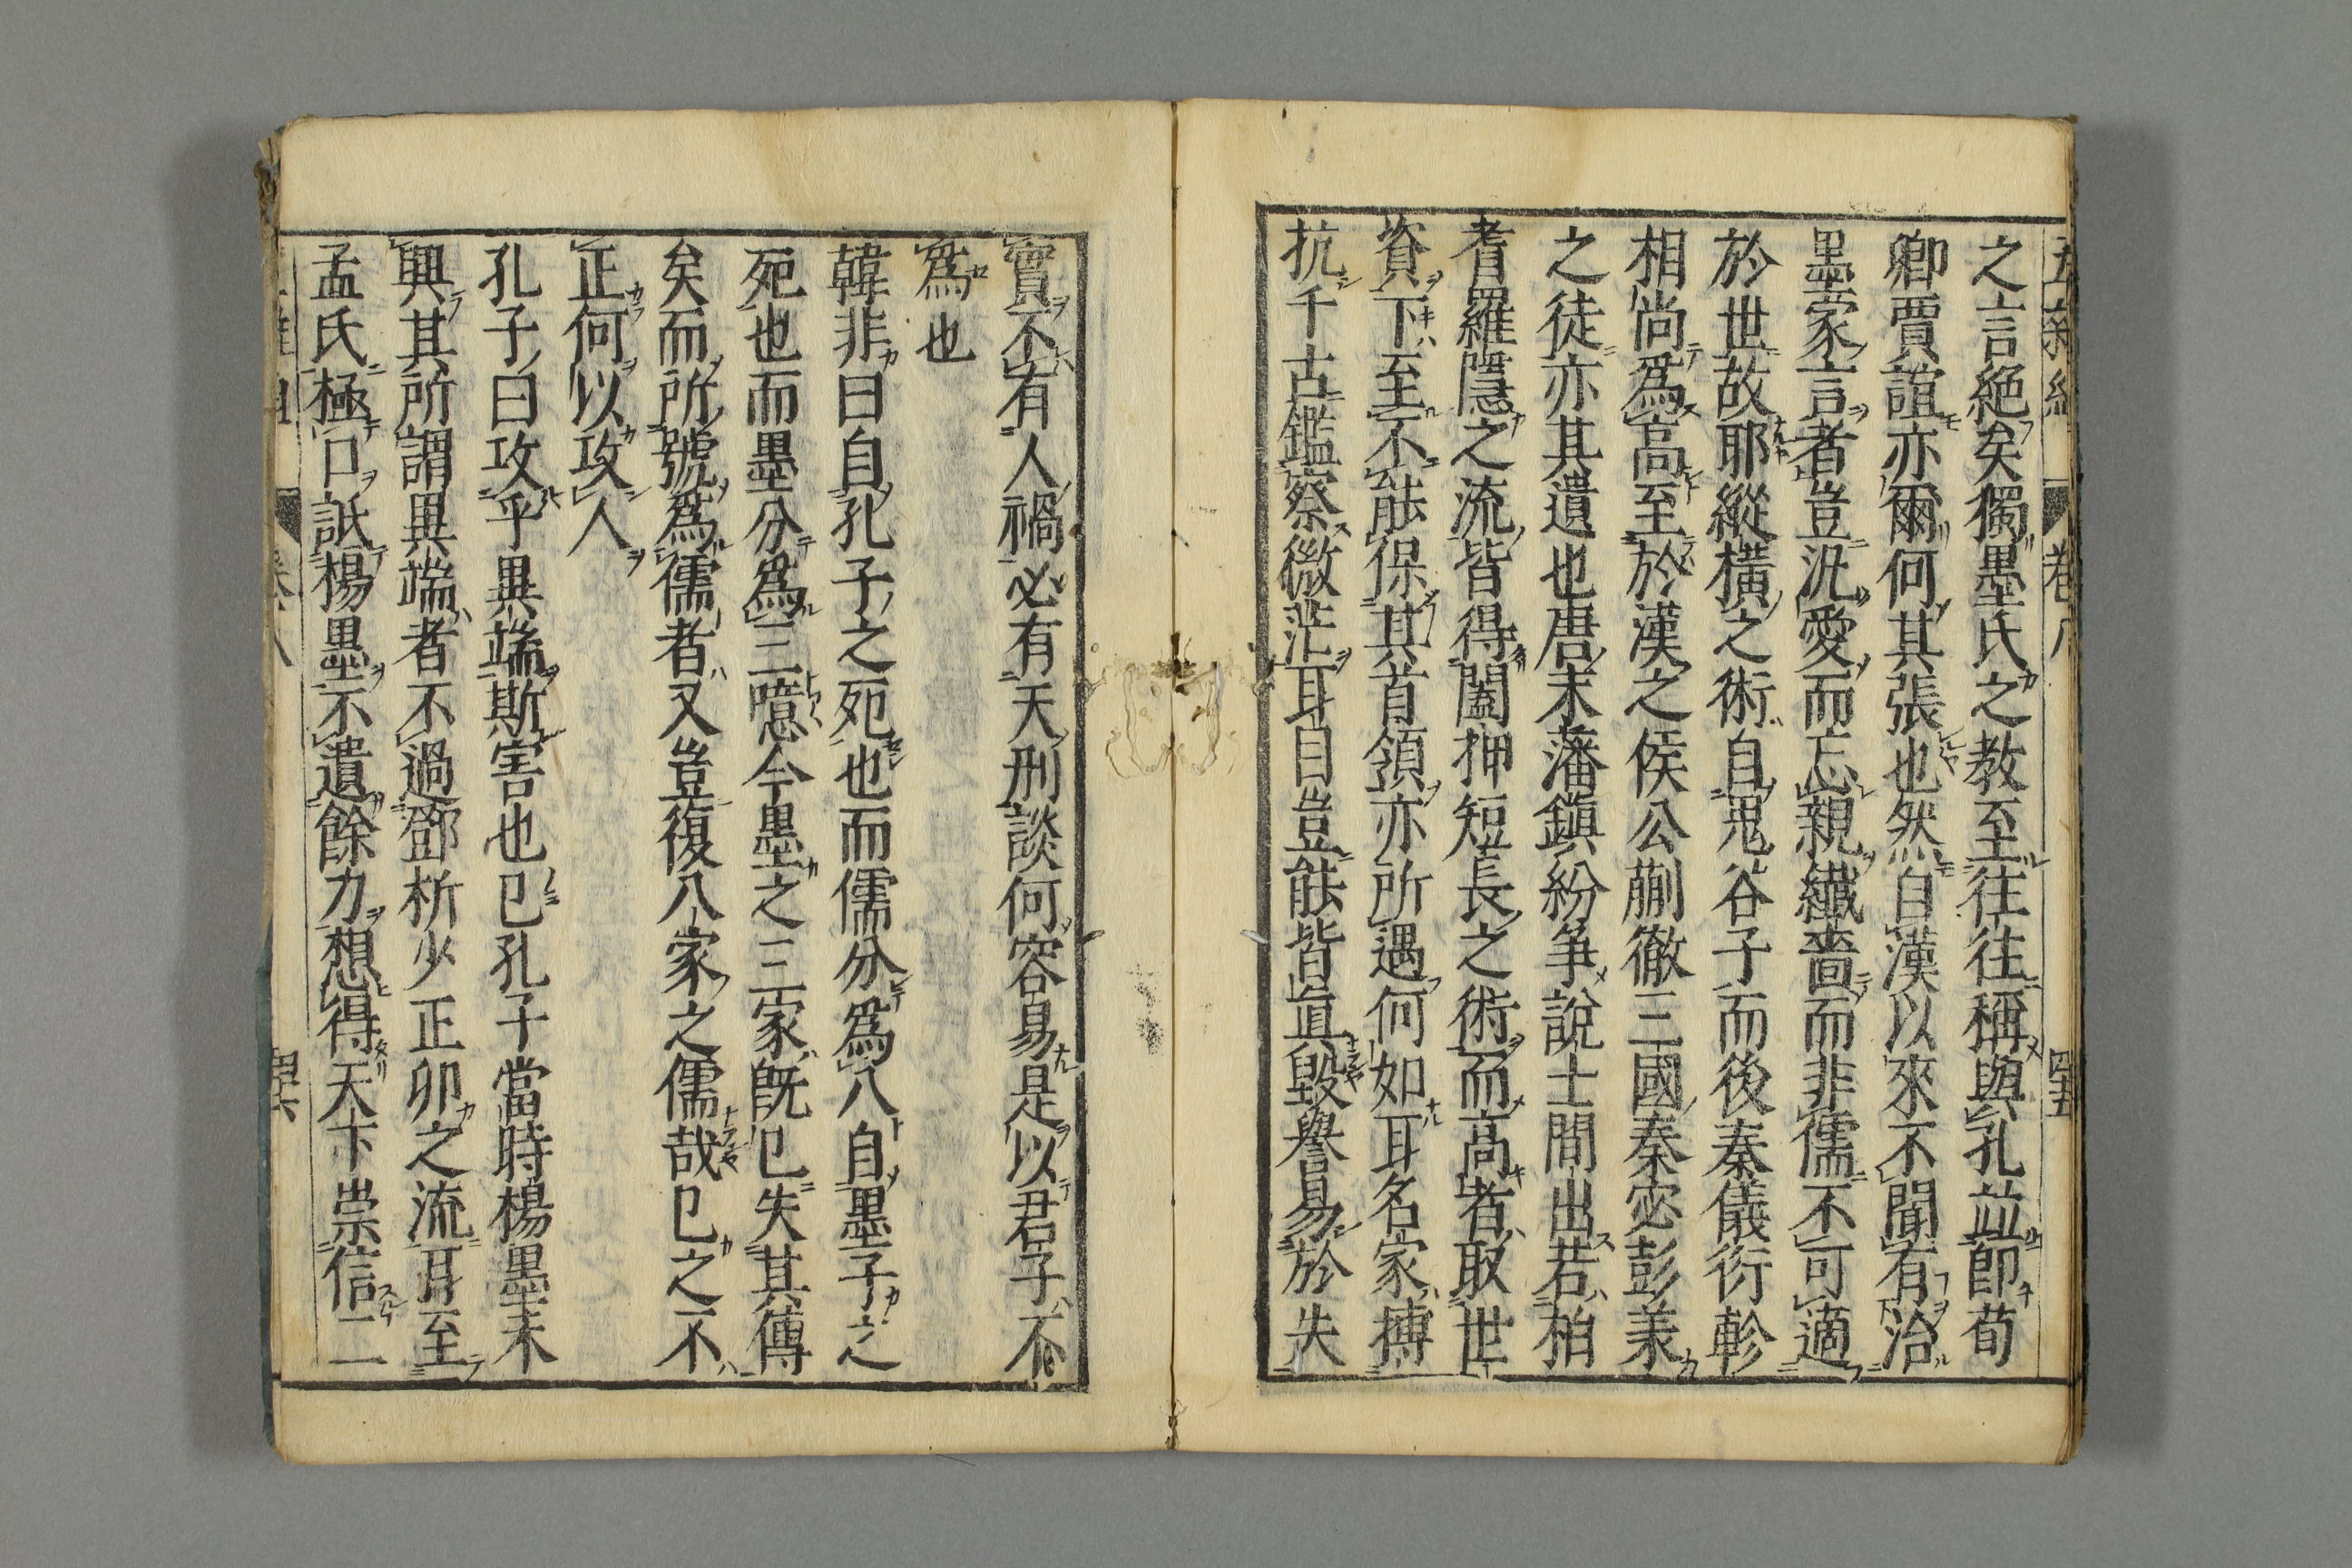 之言絕矣獨墨氏之教至往往稱與孔並卽荀
卿賈誼亦爾何其張也然自漢以來不聞有治
墨家言者豈汎愛而忘親纖嗇而非儒不可適
於世故耶縱橫之術自鬼谷子而後秦儀衍軫
相尚爲高至於漢之侯公蒯徹三國秦宓彭羕
之徒亦其遺也唐末藩鎮紛爭說士間出若柏
耆羅隱之流皆得闔押短長之術而高者取世
資下至不能保其首領亦所遇何如耳名家搏
抗千古鑑察微茫耳目豈能皆眞毀譽易於失
實不有人禍必有天刑談何容易是以君子不
爲也
韓非曰自孔子之死也而儒分爲八自墨子之
死也而墨分爲三噫今墨之三家旣已失其傳
矣而所號爲儒者又豈復八家之儒哉已之不
正何以攻人
孔子曰攻乎異端斯害也已孔子當時楊墨未
興其所謂異端者不過鄧析少正卯之流耳至
孟氏極口詆楊墨不遺餘力想得天下崇信二